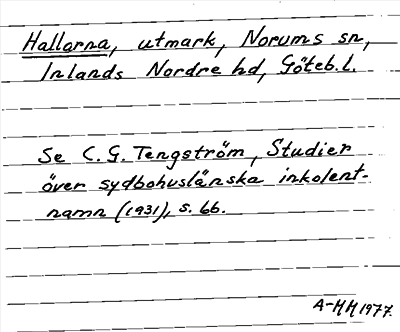 Hallorna, utmark, Norums sn,
Inlands Nordre hd, Göteb.l.
Se C. G. Tengström, Studier
över sydbohuslänska inkolent-
namn (1931), s. 66.
A-HH 1977.